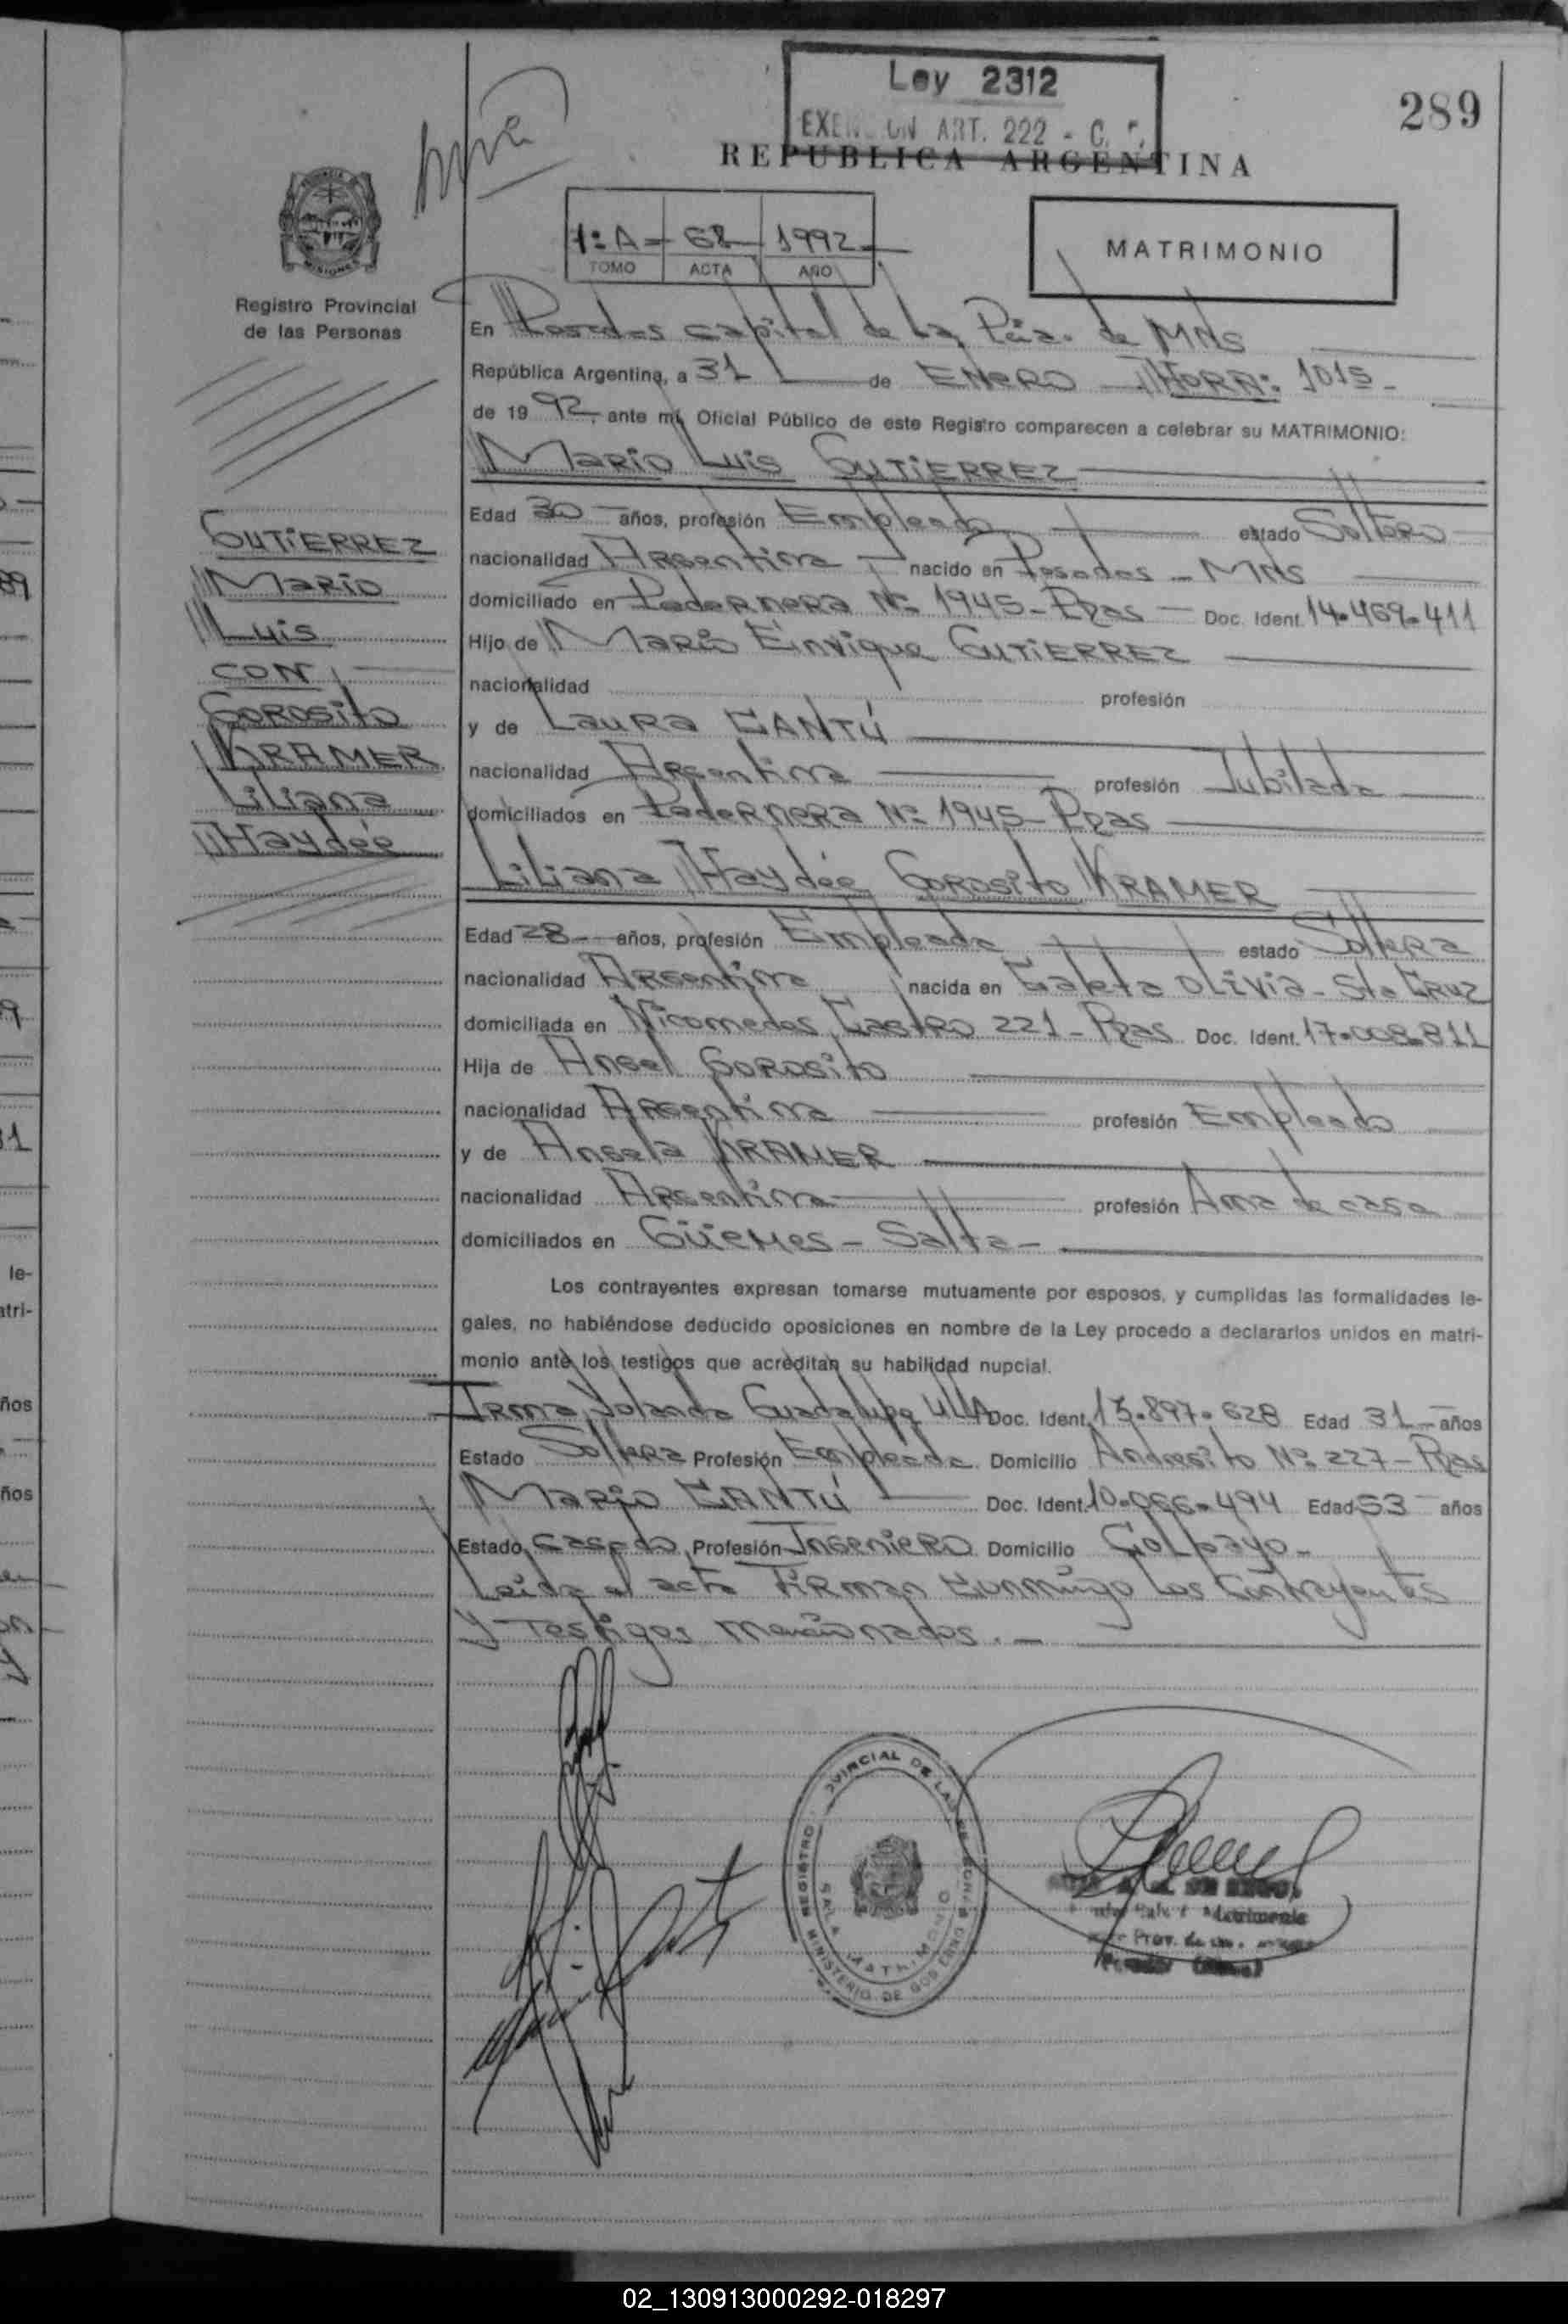 Ley 2312
ART. 222 - C.
289
REPUBLICA ARGENTINA
1: A - 68 - 1992
TOMO ACTA AÑO
MATRIMONIO
PROVINCIA DE MISIONES
Registro Provincial
de las Personas
En Posadas capital de la Pcia. de MNS
República Argentina, a 31 de ENERO HORA: 1015
de 19 92, ante mí, Oficial Público de este Registro comparecen a celebrar su MATRIMONIO:
Mario Luis GUTIERREZ
Edad 30 años, profesión Empleado estado Soltero
nacionalidad Argentina nacido en Posadas - MNS
domiciliado en Pedernera Nº 1945 - Pdas - Doc. Ident. 14.469.411
Hijo de Mario Enrique GUTIERREZ
nacionalidad profesión
y de Laura CANTÚ
nacionalidad Argentina profesión Jubilada
domiciliados en Pedernera Nº 1945 - Pdas
Liliana Haydée Gorosito KRAMER
Edad 28 años, profesión Empleada estado Soltera
nacionalidad Argentina nacida en Caleta Olivia - Sta Cruz
domiciliada en Nicomedes Castro 221 - Pdas Doc. Ident. 17.008.811
Hija de Angel Gorosito
nacionalidad Argentina profesión Empleado
y de Angela KRAMER
nacionalidad Argentina profesión Ama de casa
domiciliados en Güemes - Salta -
Los contrayentes expresan tomarse mutuamente por esposos, y cumplidas las formalidades le-
gales, no habiéndose deducido oposiciones en nombre de la Ley procedo a declararlos unidos en matri-
monio ante los testigos que acreditan su habilidad nupcial.
Irma Yolanda Guadalupe ULLA Doc. Ident. 13.897.628 Edad 31 años
Estado Soltera Profesión Empleada Domicilio Andresito Nº 227 - Pdas
Mario CANTÚ Doc. Ident. 10.066.494 Edad 53 años
Estado casado Profesión Ingeniero Domicilio
Leida el acta Firman Conmigo los Contrayentes
y Testigos mencionados. -
GUTIERREZ
Mario
Luis
CON
Gorosito
KRAMER
Liliana
Haydée
REGISTRO PROVINCIAL DE LAS PERSONAS
SALA MATRIMONIO
MINISTERIO DE GOBIERNO
02_130913000292-018297